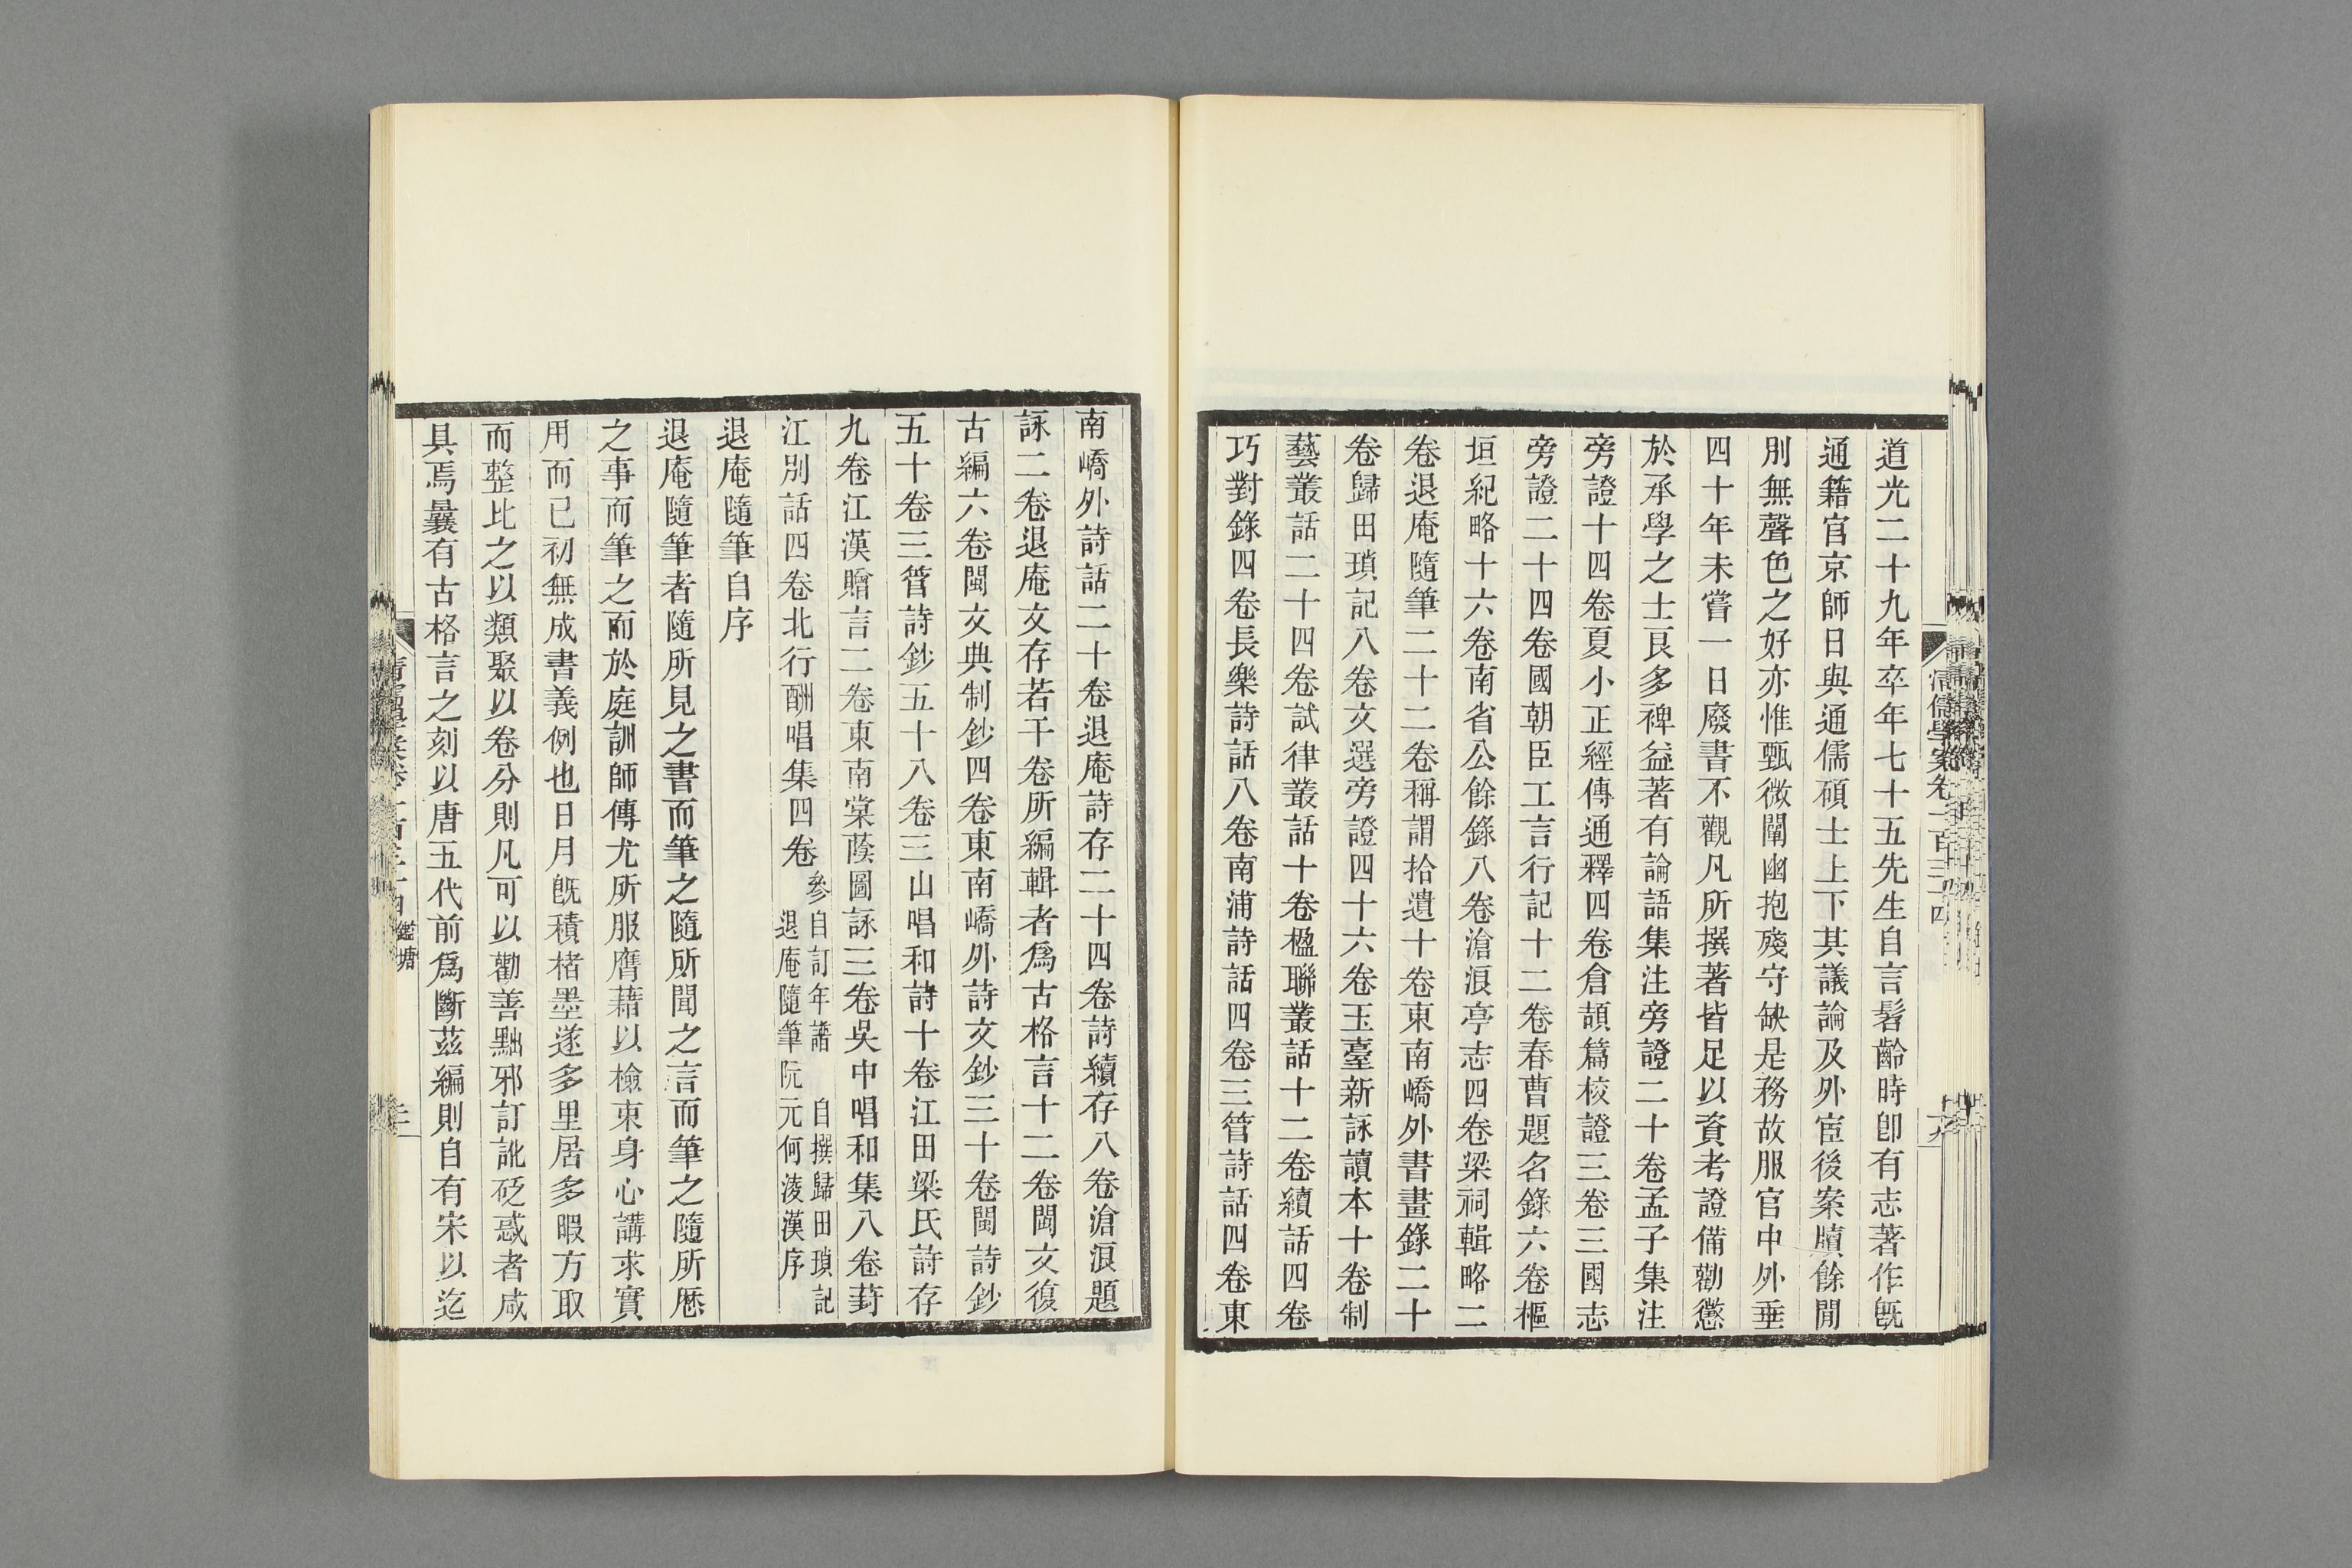 道光二十九年卒年七十五先生自言髫齡時卽有志著作旣
通籍官京師日與通儒碩士上下其議論及外宦後案牘餘閒
別無聲色之好亦惟甄微闡幽抱殘守缺是務故服官中外垂
四十年未嘗一日廢書不觀凡所撰著皆足以資考證備勸懲
於承學之士良多裨益著有論語集注旁證二十卷孟子集注
旁證十四卷夏小正經傳通釋四卷倉頡篇校證三卷三國志
旁證二十四卷國朝臣工言行記十二卷春曹題名錄六卷樞
垣紀略十六卷南省公餘錄八卷滄浪亭志四卷梁祠輯略二
卷退庵隨筆二十二卷稱謂拾遺十卷東南嶠外書畫錄二十
卷歸田瑣記八卷文選旁證四十六卷玉臺新詠讀本十卷制
藝叢話二十四卷試律叢話十卷楹聯叢話十二卷續話四卷
巧對錄四卷長樂詩話八卷南浦詩話四卷三管詩話四卷東
南嶠外詩話二十卷退庵詩存二十四卷詩續存八卷滄浪題
詠二卷退庵文存若干卷所編輯者爲古格言十二卷閩文復
古編六卷閩文典制鈔四卷東南嶠外詩文鈔三十卷閩詩鈔
五十卷三管詩鈔五十八卷三山唱和詩十卷江田梁氏詩存
九卷江漢贈言二卷東南棠蔭圖詠三卷吳中唱和集八卷葑
江別話四卷北行酬唱集四卷
參自訂年譜 自撰歸田瑣記
退庵隨筆阮元何淩漢序
退庵隨筆自序
退庵隨筆者隨所見之書而筆之隨所聞之言而筆之隨所歷
之事而筆之而於庭訓師傳尤所服膺藉以檢束身心講求實
用而已初無成書義例也日月旣積楮墨遂多里居多暇方取
而整比之以類聚以卷分則凡可以勸善黜邪訂訛砭惑者咸
具焉曩有古格言之刻以唐五代前爲斷茲編則自有宋以迄
清儒學案卷一百三十四
鑑塘